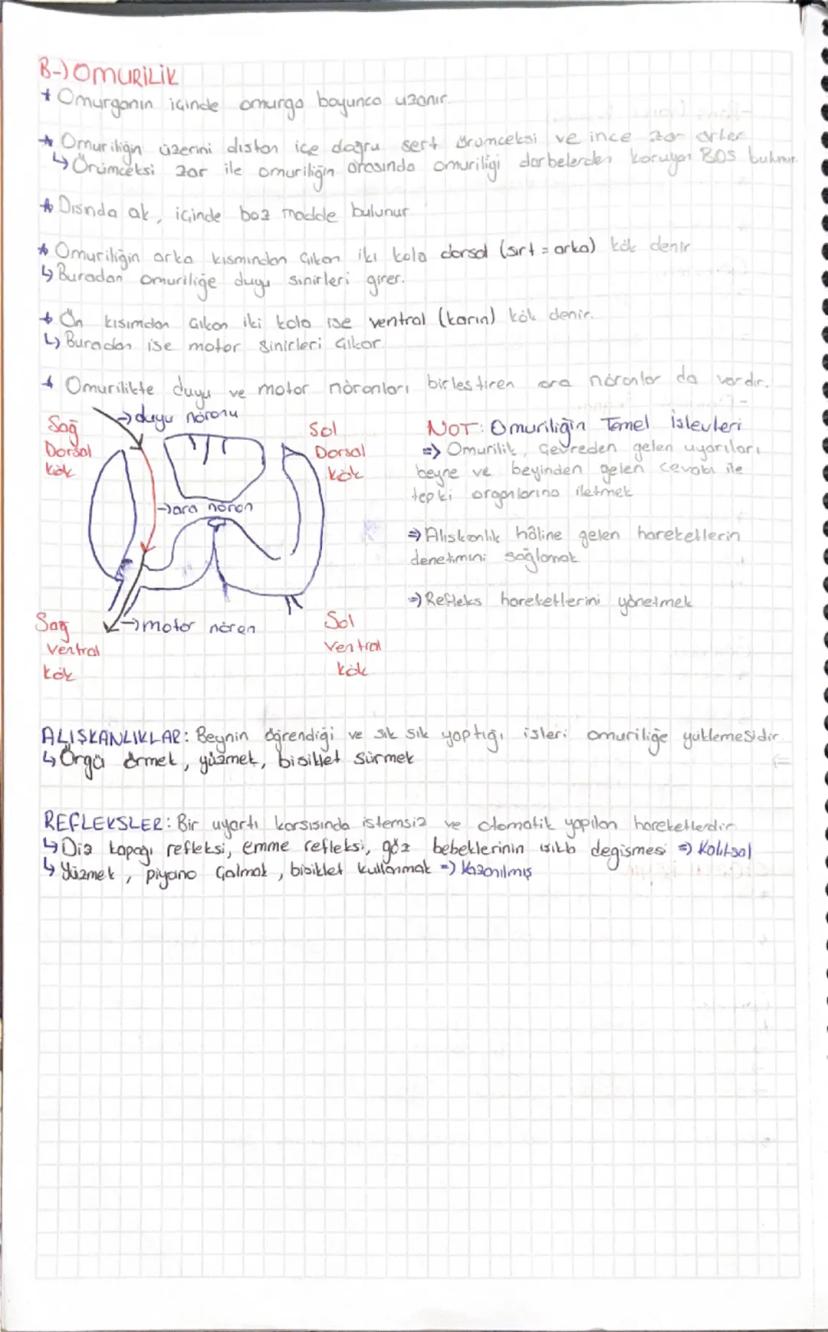 B-) OMURİLİK
* Omurganın içinde omurga boyunca uzanır.
* Omuriliğin üzerini dıstan içe doğru sert örümceksi ve ince zar örter
↳ Örümceksi zar ile omuriliğin arasında omuriliği darbelerden koruyan BOS bulunur.
* Dısında ak, içinde boz madde bulunur
* Omuriliğin arka kısmından çıkan iki kola dorsal (sırt = arka) kök denir
↳ Buradan omuriliğe duyu sinirleri girer.
* Ön kısımdan çıkan iki kola ise ventral (karın) kök denir.
↳ Buradan ise motor sinirleri çıkar
* Omurilikte duyu ve motor nöronları birlestiren ara nöronlar da vardır.
→ duyu nöronu
Sağ
Dorsal
kök
Sol
Dorsal
kök
→ ara nöron
Sağ
ventral
kök
→ motor nöron
Sol
Ventral
kök
NOT: Omuriliğin Temel İslevleri
⇒ Omurilik, çevreden gelen uyarıları
beyne ve beyinden gelen cevabı ile
tepki organlarına iletmek
⇒ Alıskanlık hâline gelen hareketlerin
denetimini sağlamak
⇒ Refleks hareketlerini yönetmek
ALIŞKANLIKLAR: Beynin öğrendiği ve sık sık yaptığı isleri omuriliğe yüklemesidir
↳ Örgü örmek, yüzmek, bisiklet sürmek
REFLEKSLER: Bir uyartı karsısında istemsiz ve otomatik yapılan hareketlerdir
↳ Diz kapağı refleksi, emme refleksi, göz bebeklerinin ısıkla degişmesi ⇒ Kalıtsal
↳ Yüzmek, piyano çalmak, bisiklet kullanmak ⇒ Kazanılmış